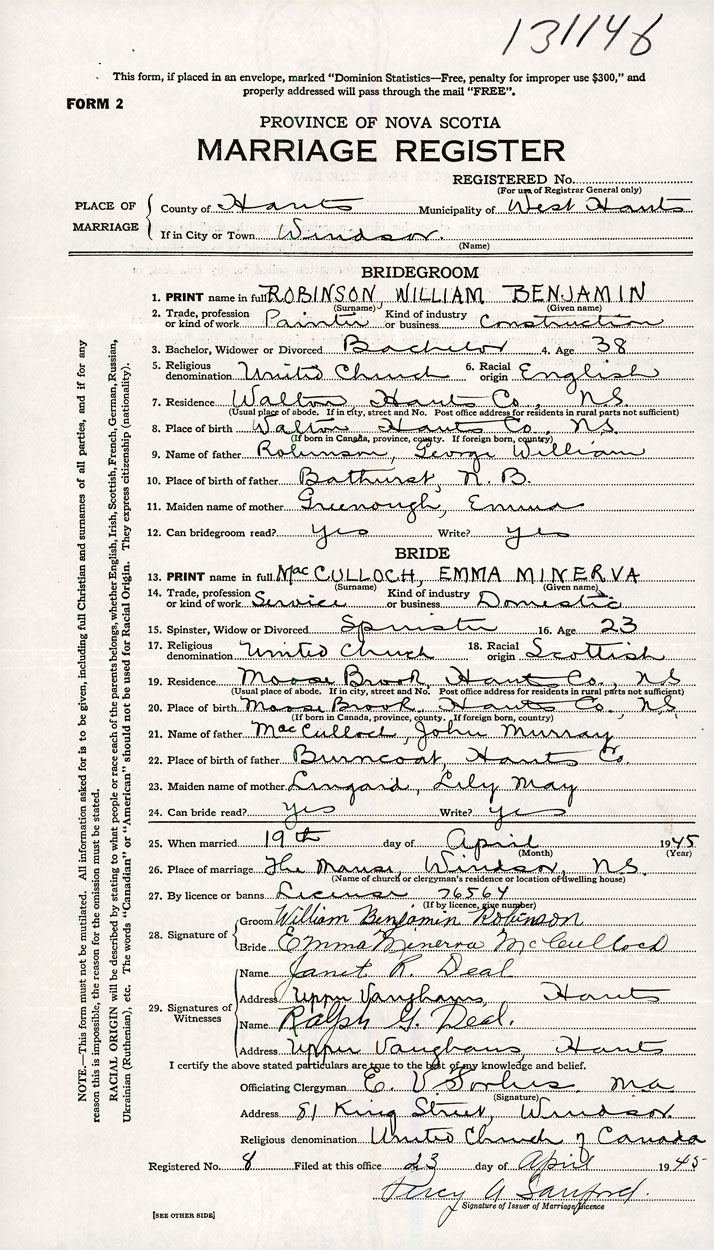 131146
This form, if placed in an envelope, marked “Dominion Statistics—Free, penalty for improper use $300,” and
properly addressed will pass through the mail “FREE”.
FORM 2
PROVINCE OF NOVA SCOTIA
MARRIAGE REGISTER
REGISTERED No.
(For use of Registrar General only)
PLACE OF MARRIAGE
County of Hants Municipality of West Hants
If in City or Town Windsor.
(Name)
BRIDEGROOM
1. PRINT name in full ROBINSON, WILLIAM BENJAMIN
(Surname) (Given name)
2. Trade, profession or kind of work Painter Kind of industry or business Construction
3. Bachelor, Widower or Divorced Bachelor 4. Age 38
5. Religious denomination United Church 6. Racial origin English
7. Residence Walton Hants Co., N.S.
(Usual place of abode. If in city, street and No. Post office address for residents in rural parts not sufficient)
8. Place of birth Walton Hants Co., N.S.
(If born in Canada, province, county. If foreign born, country)
9. Name of father Robinson, George William
10. Place of birth of father Bathurst, N.B.
11. Maiden name of mother Greenough, Emma
12. Can bridegroom read? yes Write? yes
BRIDE
13. PRINT name in full MacCULLOCH, EMMA MINERVA
(Surname) (Given name)
14. Trade, profession or kind of work Service Kind of industry or business Domestic
15. Spinster, Widow or Divorced Spinster 16. Age 23
17. Religious denomination United Church 18. Racial origin Scottish
19. Residence Moose Brook, Hants Co., N.S
(Usual place of abode. If in city, street and No. Post office address for residents in rural parts not sufficient)
20. Place of birth Moose Brook, Hants Co., N.S
(If born in Canada, province, county. If foreign born, country)
21. Name of father MacCulloch, John Murray
22. Place of birth of father Burncoat, Hants Co.
23. Maiden name of mother Lingard, Lily May
24. Can bride read? yes Write? yes
25. When married 19th day of April 1945
(Month) (Year)
26. Place of marriage The Manse, Windsor, N.S.
(Name of church or clergyman's residence or location of dwelling house)
27. By licence or banns License 76564
(If by licence, give number)
28. Signature of
Groom William Benjamin Robinson
Bride Emma Minerva McCulloch
29. Signatures of Witnesses
Name Janet R. Deal
Address Upper Vaughans, Hants
Name Ralph G. Deal.
Address Upper Vaughans, Hants
I certify the above stated particulars are true to the best of my knowledge and belief.
Officiating Clergyman E. V. Forbes M.A.
(Signature)
Address 81 King Street, Windsor.
Religious denomination United Church of Canada
Registered No. 8 Filed at this office 23 day of April 1945
Percy A Sanford.
Signature of Issuer of Marriage Licence
[SEE OTHER SIDE]
NOTE.—This form must not be mutilated. All information asked for is to be given, including full Christian and surnames of all parties, and if for any
reason this is impossible, the reason for the omission must be stated.
RACIAL ORIGIN will be described by stating to what people or race each of the parents belongs, whether English, Irish, Scottish, French, German, Russian,
Ukrainian (Ruthenian), etc. The words “Canadian” or “American” should not be used for Racial Origin. They express citizenship (nationality).